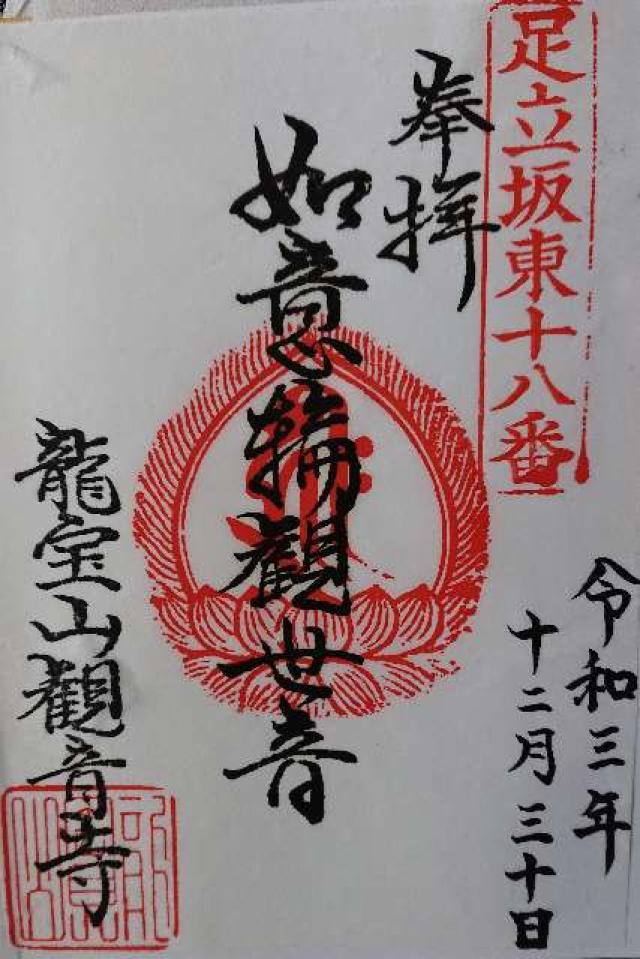 足立坂東十八番
奉拝
令和三年
十二月三十日
如意輪觀世音
龍宝山観音寺